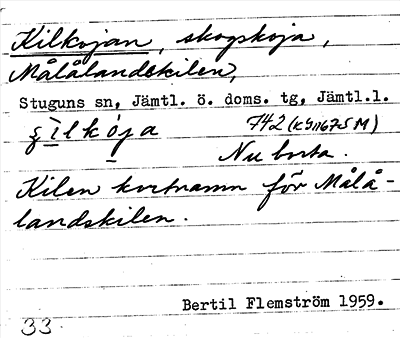 Kilkojan, skogskoja,
Målålandskilen,
Stuguns sn, Jämtl. ö. doms. tg, Jämtl.l.
742 (K911675 M)
Nu borta.
Kilen kortnamn för Målå-
landskilen.
Bertil Flemström 1959.
33